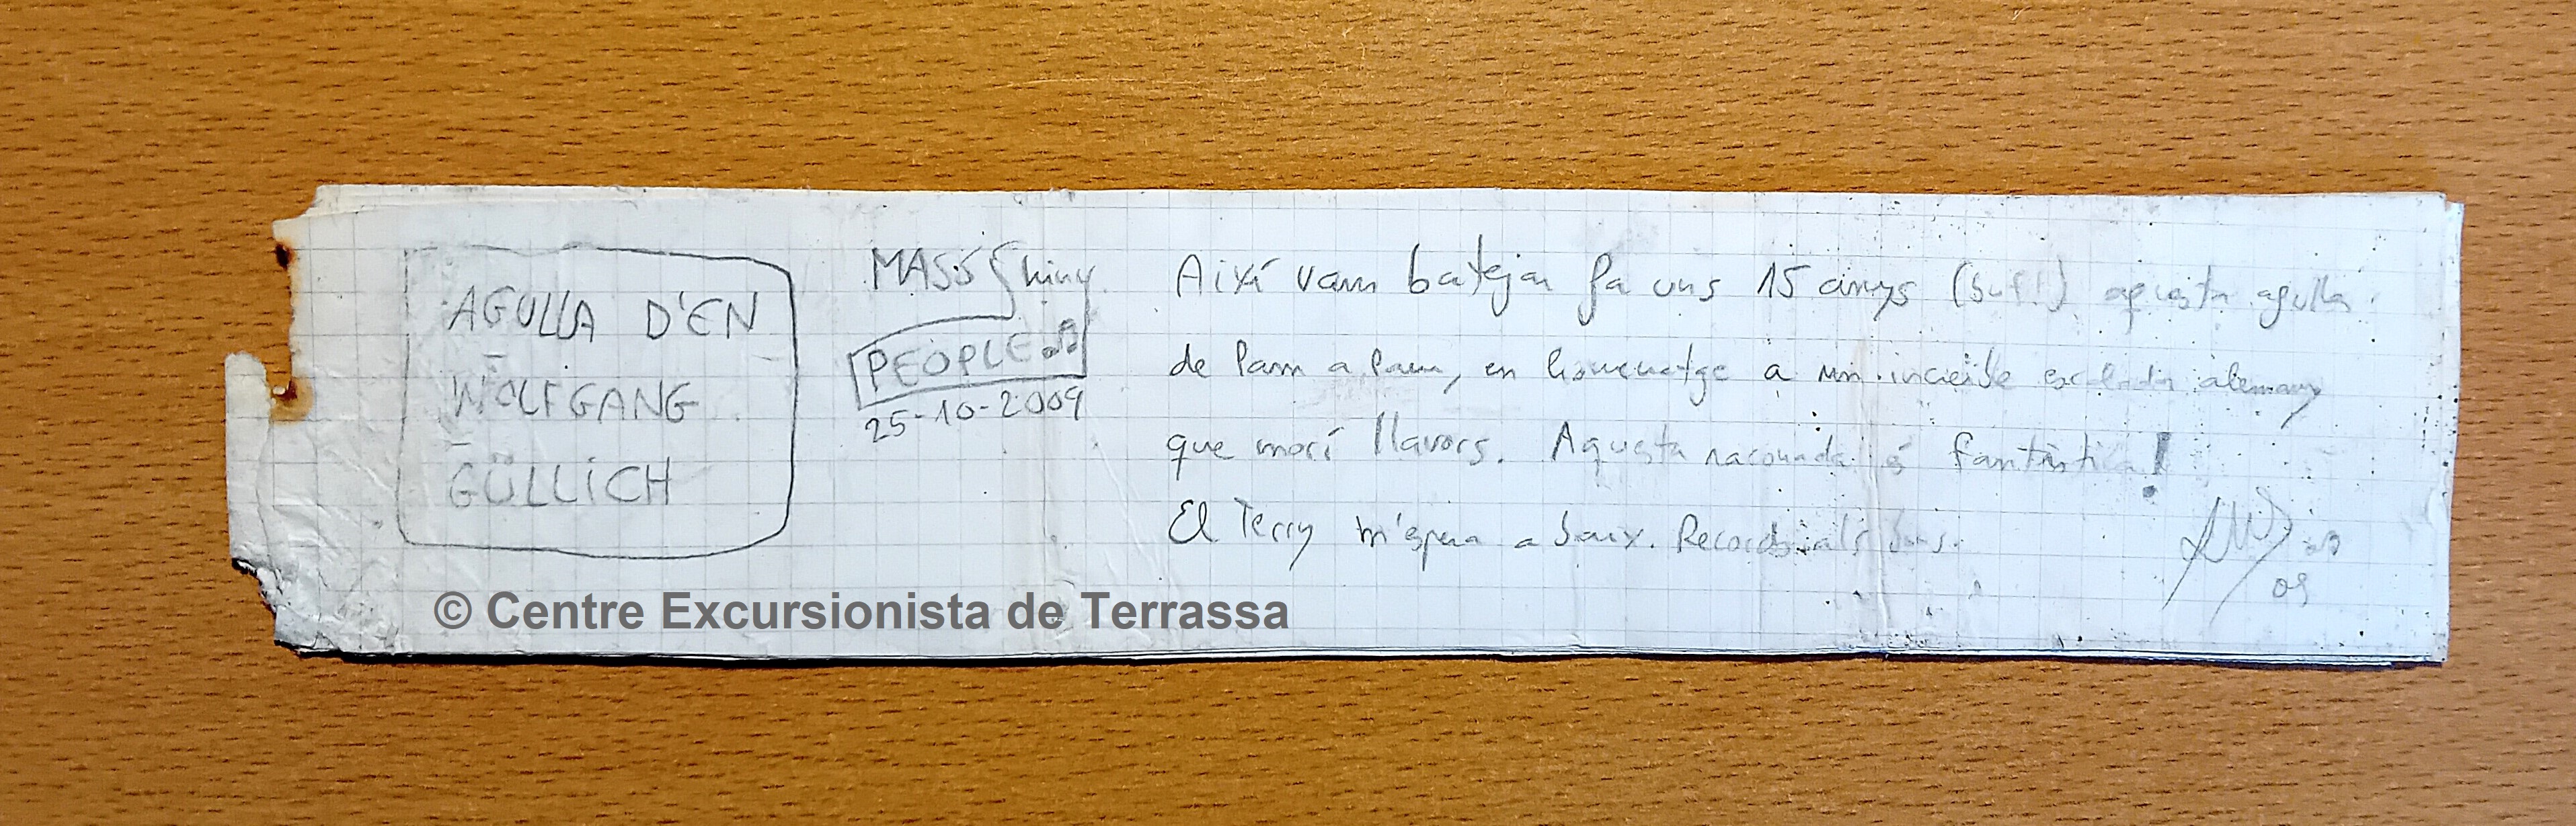 AGULLA D'EN
WOLFGANG
GÜLLICH
MASS Shiny
PEOPLE
25-10-2009
Així vam batejar fa uns 15 anys (buf!) aquesta agulla
de Pam a Pam, en homenatge a un increible escalador alemany
que morí llavors. Aquesta raconada és fantàstica!
El Terry m'espera a baix. Records als
09
© Centre Excursionista de Terrassa